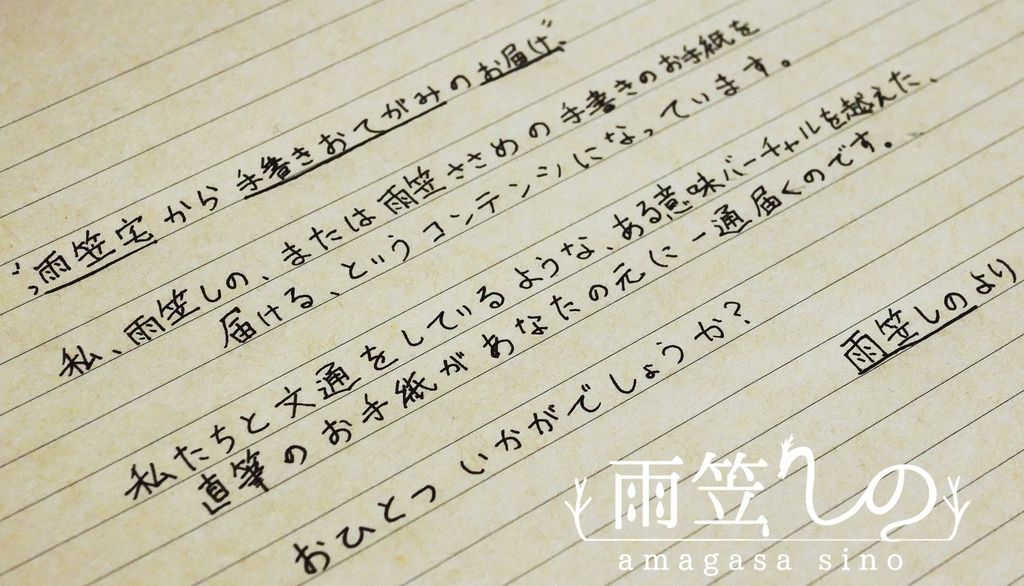 雨笠宅から手書きおてがみのお届け、
私、雨笠しの、または雨笠ささめの手書きのお手紙を
届ける、というコンテンツになっています。
私たちと文通をしているような、ある意味バーチャルを越えた、
直筆のお手紙があなたの元に一通届くのです。
おひとついかがでしょうか?
雨笠しのより
雨笠しの
amagasa sino